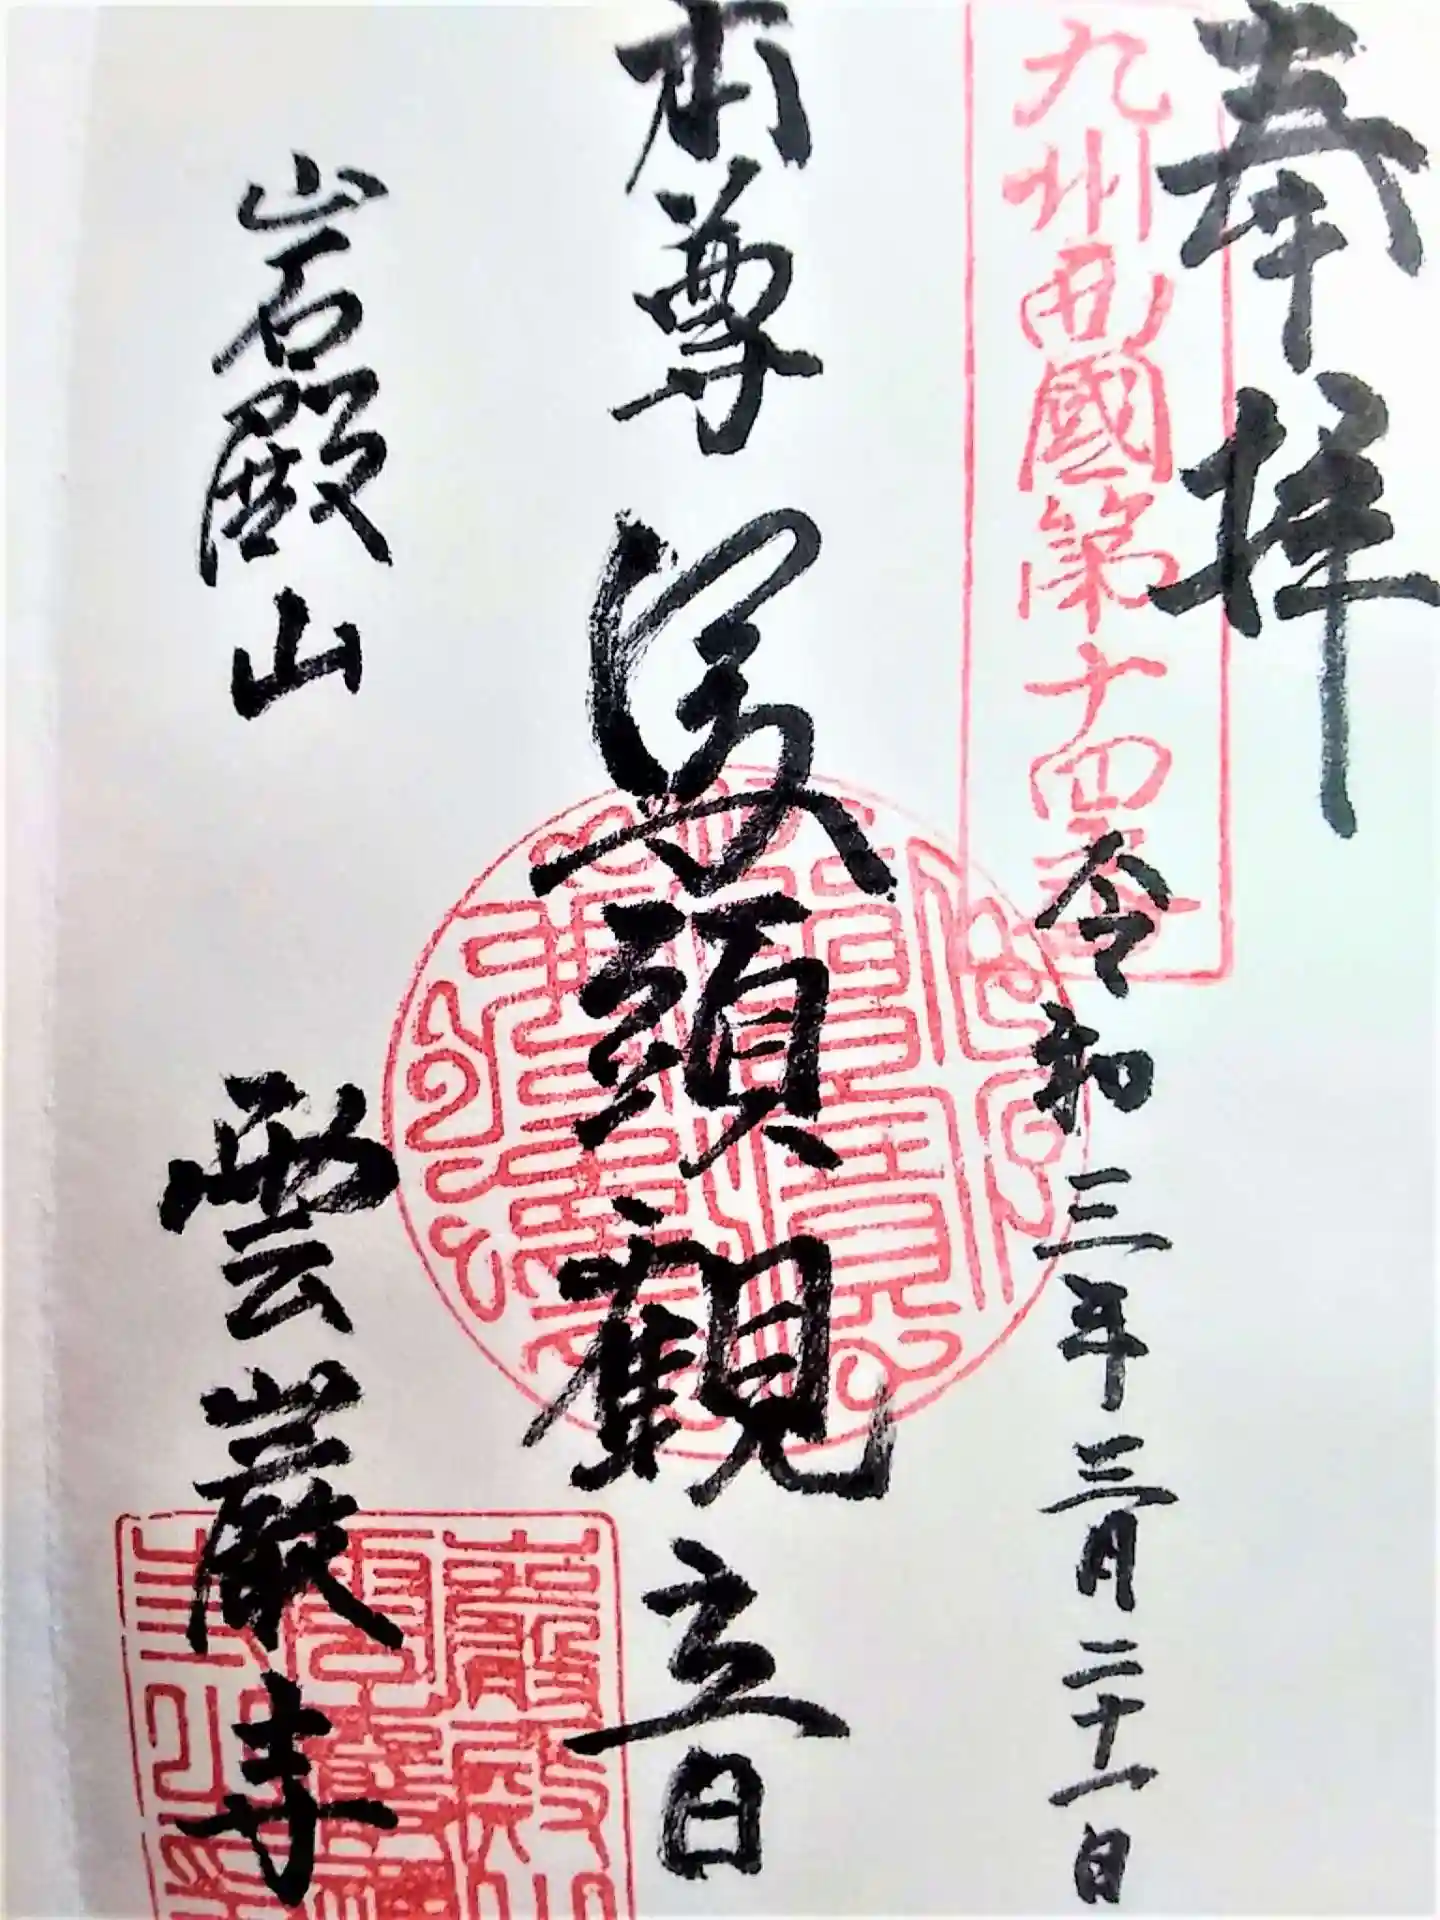 奉拝
九州西國第十四番
令和三年三月二十一日
本尊 馬頭觀音
岩殿山 雲巌寺